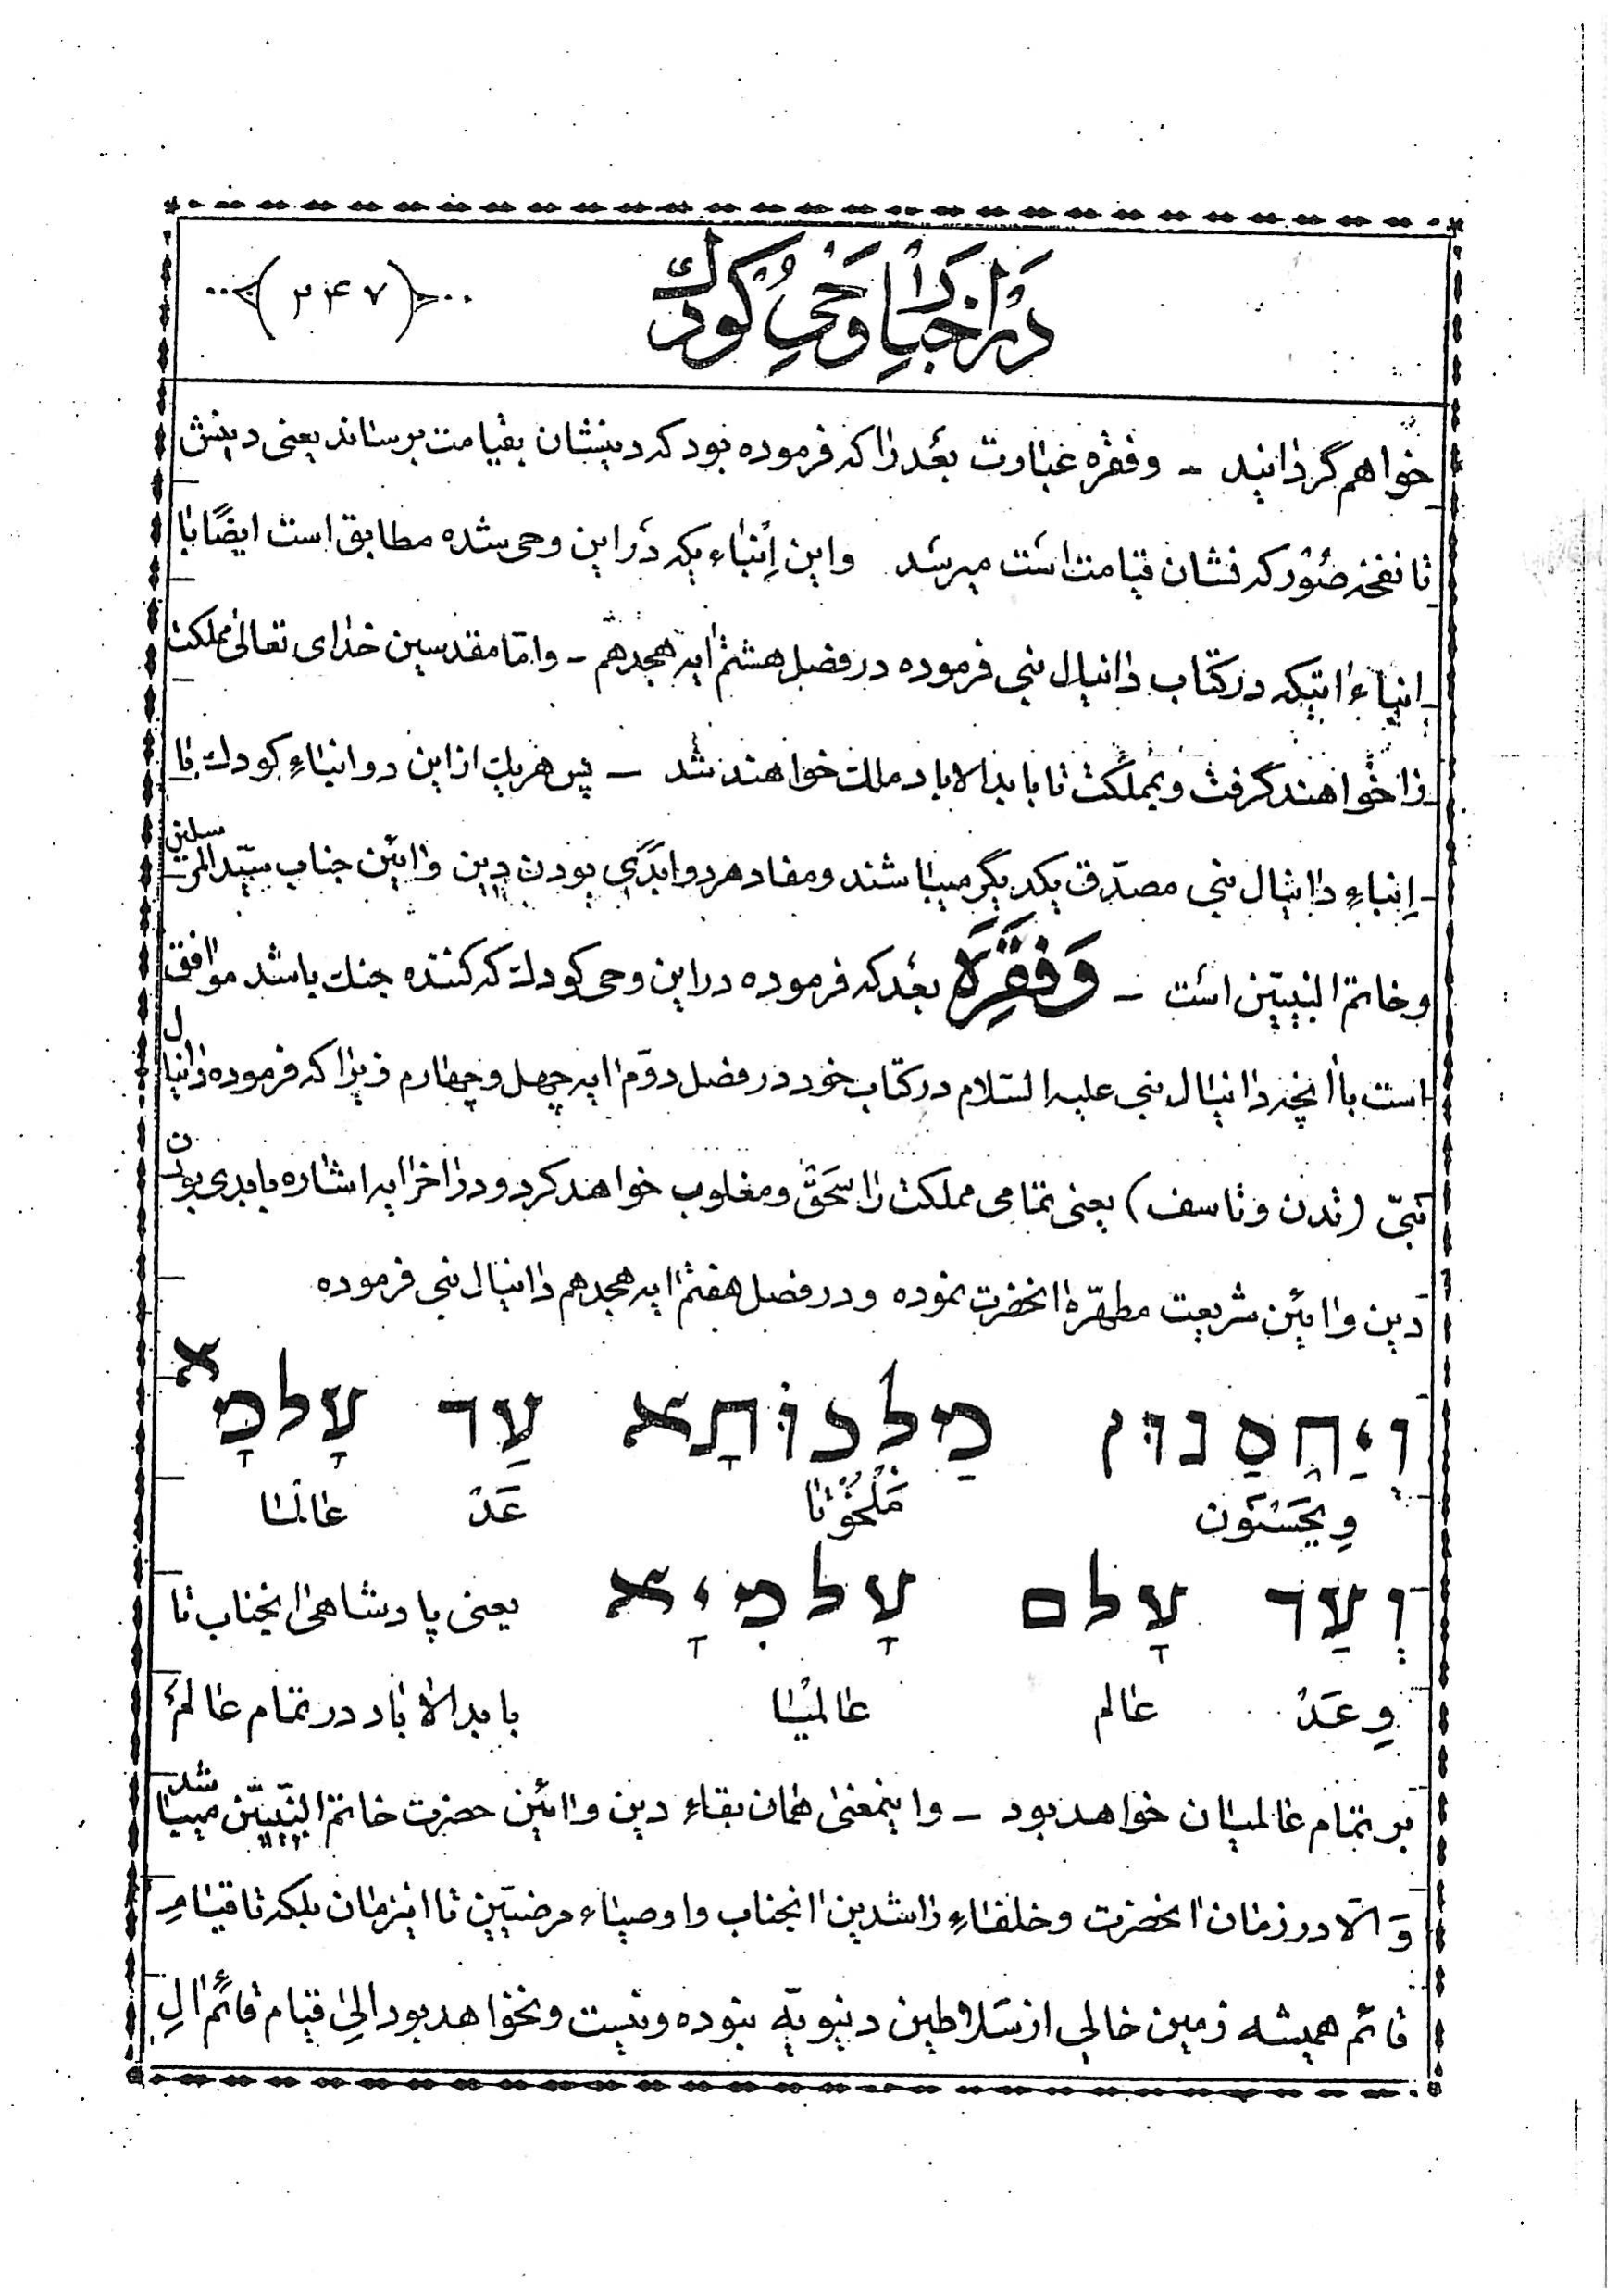 در اخبار وحی کودک
(۲۴۷)
خواهم گردانید - وفقره عبارت بعد را که فرموده بود که دینشان بقیامت برساند یعنی دینش
تا نفخه صور که نشان قیامت است میرسد واین اِنباء یکه در این وحی شده مطابق است ایضًا با
انباء اتیکه در کتاب دانیال نبی فرموده در فصل هشتم ایه هجدهم - وامّا مقدسین خدای تعالی مملکت
را خواهند گرفت وبمملکت تا بابد الاباد مالک خواهند شد - پس هر یک از این دو انباءِ کودک با
اِنباءِ دانیال نبی مصدّق یکدیگر میباشند ومفاد هر دو ابَدَی بودن دین وائین جناب سیّد المرسلین
وخاتم النبیین است - وَفقَرَه بعد که فرموده در این وحی کودک که کننده جنک باشد موافق
است با انچه دانیال نبی علیه السّلام در کتاب خود در فصل دوّم ایه چهل وچهارم زیرا که فرموده دانیال
نبیّ (تدن وتاسف) یعنی تمامی مملکت را سَحَق ومغلوب خواهند کرد ودر اخر ایه اشاره بابدی بودن
دین وائین شریعت مطهّرۀ انحضرت نموده ودر فصل هفتم ایه هجدهم دانیال نبی فرموده
וְיַחְסְנוּן מַלְכוּתָא עַד עָלְמָא
وِیَحسَنون مَلخوُتا عَدْ عالما
וְעַד עָלַם עָלְמִיָא یعنی پادشاهی انجناب تا
وِعَدْ عالم عالمیْا بابد الاباد در تمام عالم
بر تمام عالمیان خواهد بود - واینمعنی همان بقاءِ دین وائین حضرت خاتم النّبییّن میباشد
وَالّا در زمان انحضرت وخلفاءِ راشدین انجناب واوصیاء مرضییّن تا اینزمان بلکه تا قیامِ
قائم همیشه زمین خالی از سَلاطین دنیویّه نبوده ونیست ونخواهد بود الی قیام قائم الِ